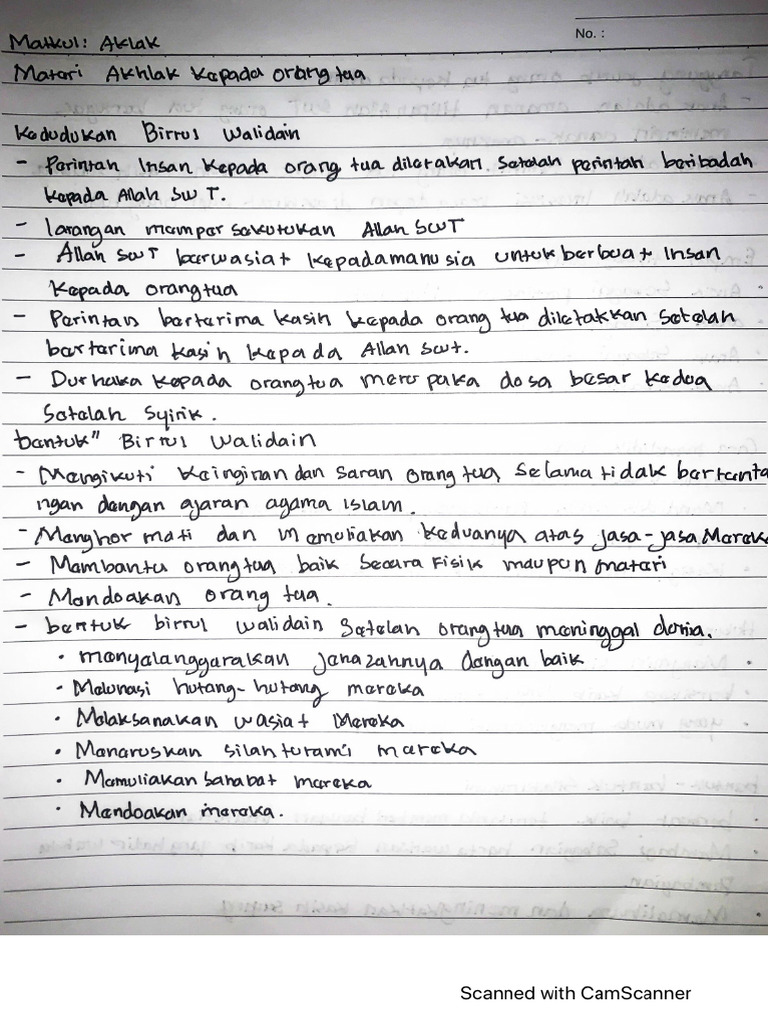 No. :
Matkul: Aklak
Materi Akhlak Kepada orang tua
Kedudukan Birrul Walidain
- Perintah Insan Kepada orang tua diletakan setelah perintah beribadah
Kepada Allah SWT.
- larangan mempersekutukan Allah SWT
- Allah SWT berwasiat kepada manusia untuk berbuat Insan
Kepada orangtua
- Perintah berterima kasih kepada orang tua diletakkan setelah
berterima kasih kepada Allah Swt.
- Durhaka kepada orangtua merupaka dosa besar kedua
Setelah Syirik.
bentuk" Birrul Walidain
- Mengikuti Keinginan dan saran orang tua, selama tidak bertenta
ngan dengan ajaran agama islam.
- Menghormati dan memuliakan keduanya atas jasa-jasa Mereka
- Membantu orangtua baik secara Fisik maupun materi
- Mendoakan orang tua.
- bentuk birrul walidain setelah orangtua meninggal dunia.
• menyelanggarakan jenazahnya dengan baik
• Melunasi hutang-hutang mereka
• Melaksanakan wasiat Mereka
• Meneruskan silahturami mereka
• Memuliakan sahabat mereka
• Mendoakan mereka.
Scanned with CamScanner